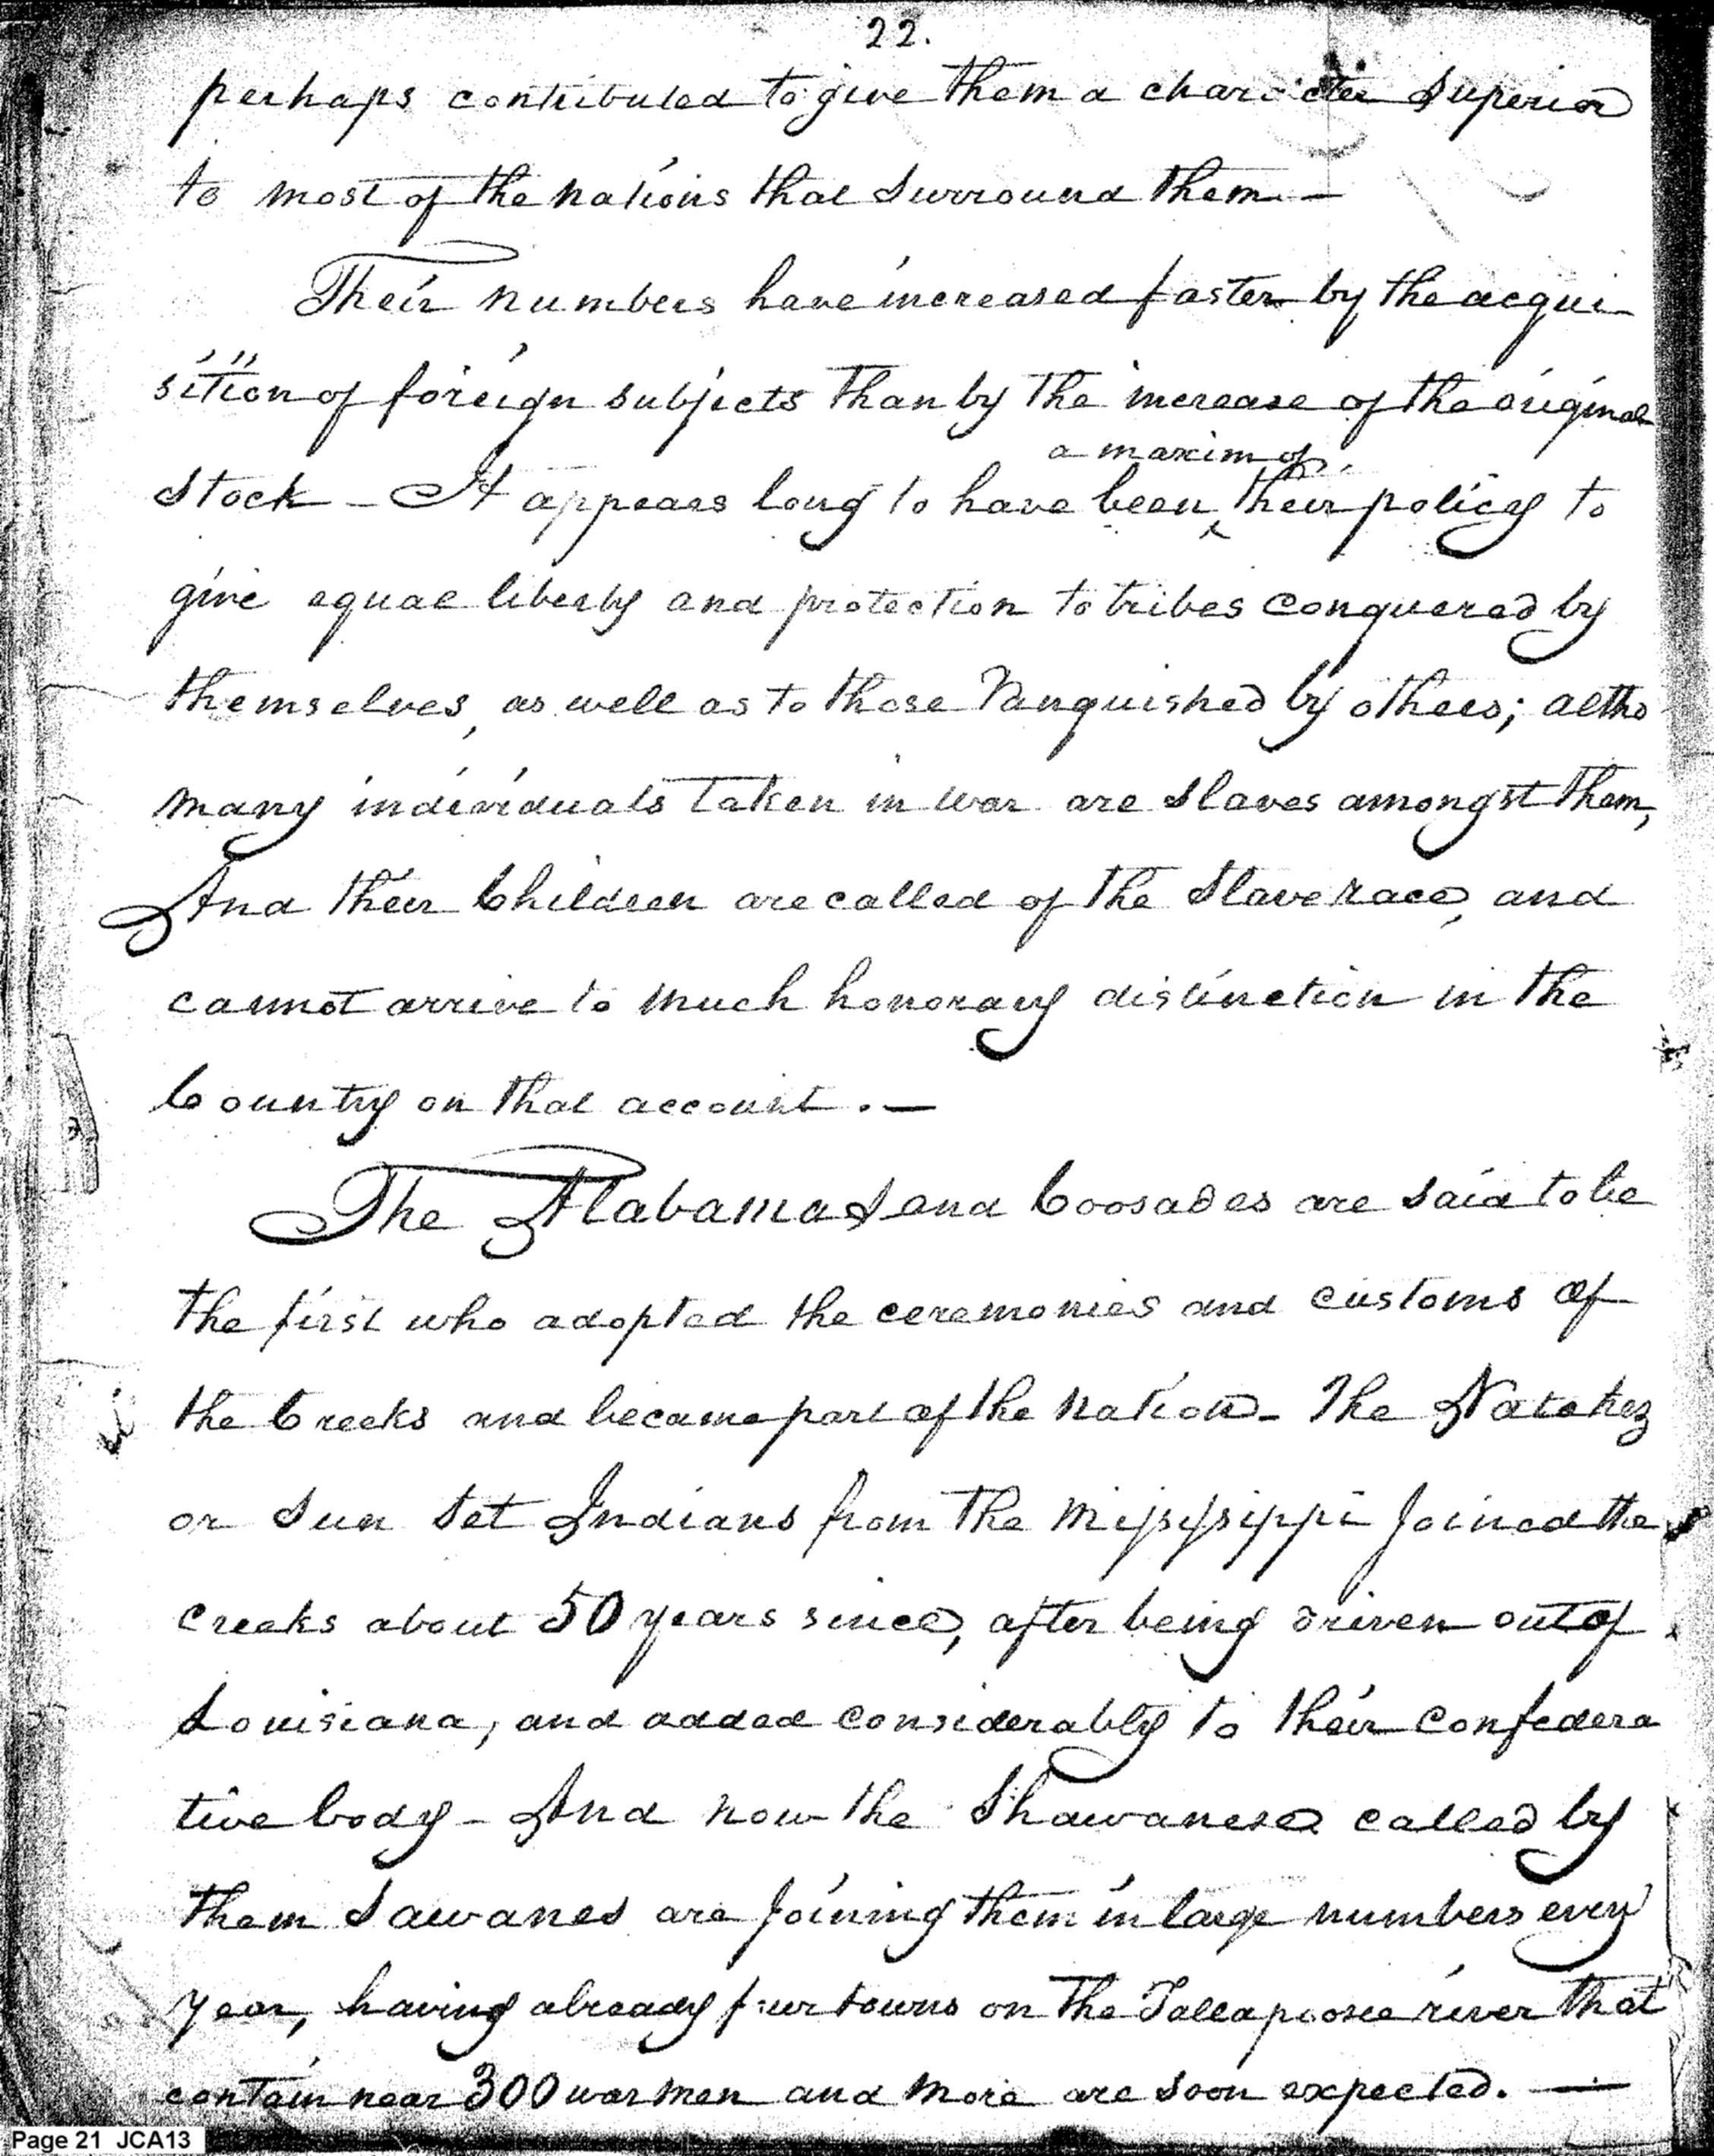 22.
perhaps contributed to give them a character Superior
to most of the nations that Surround them. —
Their numbers have increased faster by the acqui-
sition of foreign subjects than by the increase of the original
a maxim of
Stock — It appears long to have been ‸ their policy to
give equal liberty and protection to tribes conquered by
themselves, as well as to those Vanquished by others; altho
many individuals taken in war are Slaves amongst them,
And their Children are called of the Slave race, and
cannot arrive to much honorary distinction in the
Country on that account. —
The Alabamas and Coosades are said to be
the first who adopted the ceremonies and customs of
the Creeks and became part of the nation - The Natchez
or Sun Set Indians from the Missisippi Joined the
Creeks about 50 years since, after being driven out of
Louisiana, and added considerably to their confedera
tive body - And now the Shawanese called by
them Sawanes are Joining them in large numbers every
year, having already four towns on the Tallapoosee river that
contain near 300 war men and more are soon expected. —
Page 21 JCA13